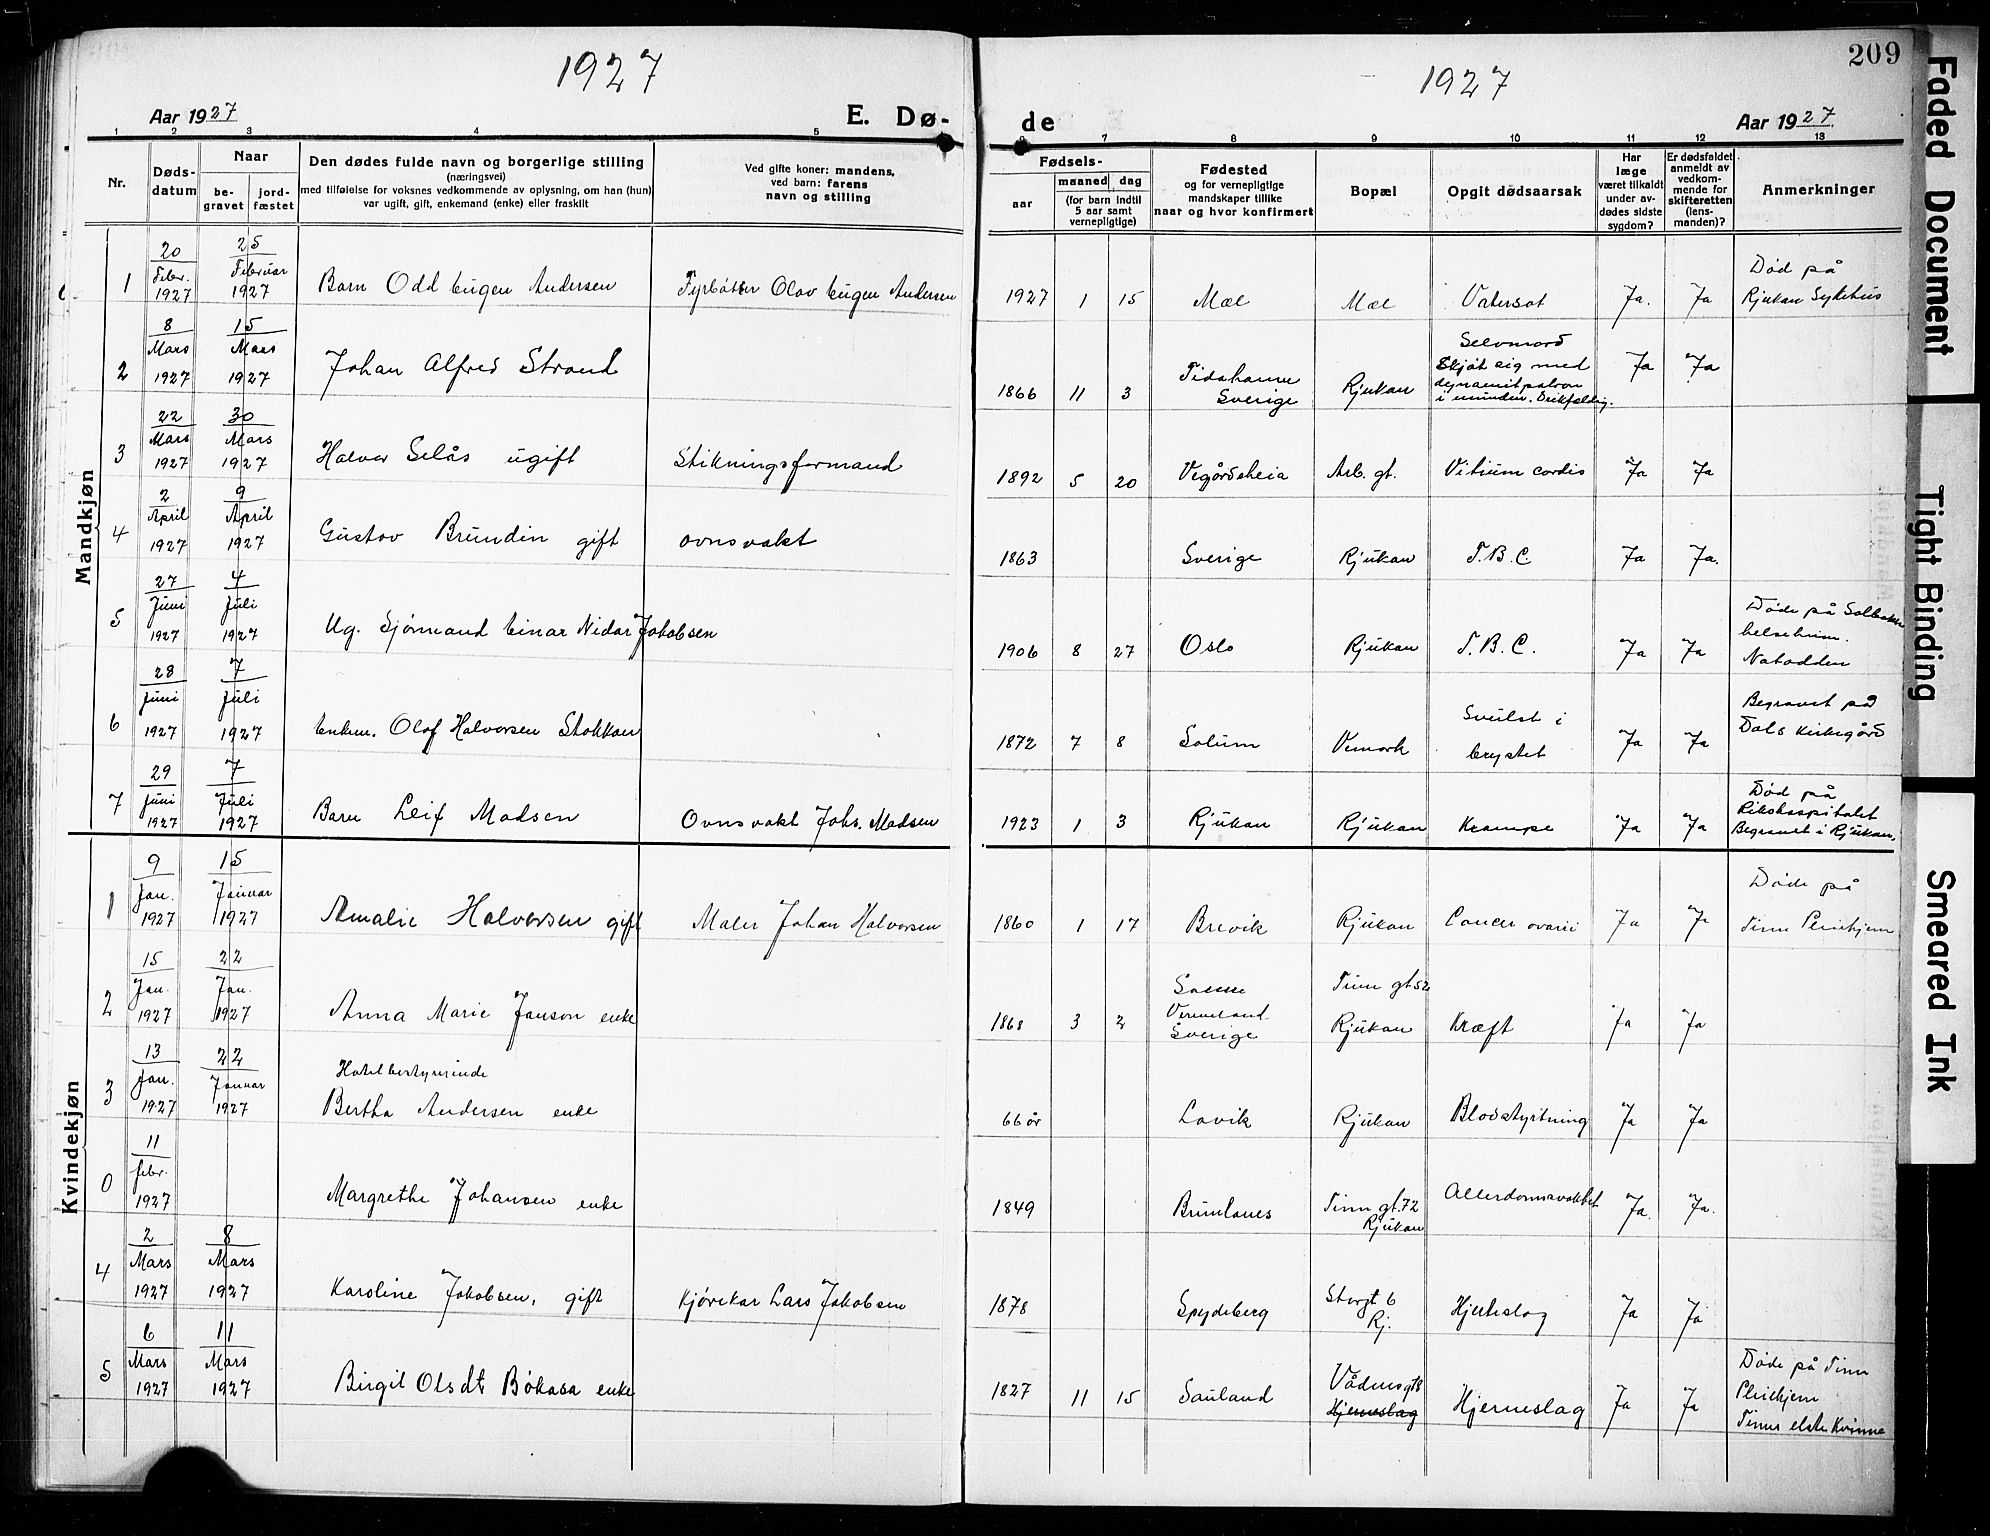 1927
1927
209
Aar 1927
E. Dø-
de
Aar 1927
1 2 3 4 5 6 7 8 9 10 11 12 13
Nr.
Døds-
datum
Naar
be-
gravet
jord-
fæstet
Den dødes fulde navn og borgerlige stilling
(næringsvei)
med tilføielse for voksnes vedkommende av oplysning, om han (hun)
var ugift, gift, enkemand (enke) eller fraskilt
Ved gifte koner: mandens,
ved barn: farens
navn og stilling
Fødsels-
aar
maaned
dag
(for barn indtil
5 aar samt
vernepligtige)
Fødested
og for vernepligtige
mandskaper tillike
naar og hvor konfirmert
Bopæl
Opgit dødsaarsak
Har
læge
været tilkaldt
under av-
dødes sidste
sygdom?
Er dødsfaldet
anmeldt av
vedkom-
mende for
skifteretten
(lens-
manden)?
Anmerkninger
Mandkjøn
1
20 Febr. 1927
25 Februar 1927
Barn Odd Eugen Andersen
Fyrbøter Olav Eugen Andersen
1927 1 15
Mæl
Mæl
Vatersot
Ja. Ja
Død på
Rjukan Sykehus
2
8 Mars 1927
15 Mars 1927
Johan Alfred Strand
1866 11 3
Tidahame
Sverige
Rjukan
Selvmord
Skjöt sig med
dynamitpatron
i munden.
Ja Ja
3
22 Mars 1927
30 Mars 1927
Halvor Selås ugift
Stikningsformand
1892 5 20
Vegårdsheia
Arb. gt.
Vitium cordis
Ja Ja
4
2 April 1927
9 April 1927
Gustav Brundin gift
ovnsvakt
1863
Sverige
Rjukan
T.B.C.
Ja Ja.
5
27 Juni 1927
4 Juli 1927
Ug. Sjømand Einar Nidar Jakobsen
1906 8 27
Oslo
Rjukan
T.B.C.
Ja Ja
Døde på Solbakken
helseheim.
Notodden
6
28 Juni 1927
7 Juli 1927
Enkem. Olaf Halvorsen Stokkan
1872 7 8
Solum
Vemork
Svulst i
brystet
Ja Ja
Begravet på
Dals kirkegård
7
29 Juni 1927
7 Juli 1927
Barn Leif Madsen
Ovnsvakt Johs. Madsen
1923 1 3
Rjukan
Rjukan
Krampe
Ja Ja
Død på
Rikshospitalet
Begravet i Rjukan.
Kvindekjøn
1
9 Jan. 1927
15 Januar 1927
Amalie Halvorsen gift
Maler Johan Halvorsen
1860 1 17
Brevik
Rjukan
Cancer ovarii
Ja Ja
Døde på
Tinn Pleiehjem
2
15 Jan. 1927
22 Jan. 1927
Anna Marie Janson enke
1868 3 2
Vermeland
Sverige
Tinn gt 52
Rjukan
Kræft
Ja Ja
3
13 Jan. 1927
22 Januar 1927
Hotelbestyrerinde
Bertha Andersen enke
66 år
Lavik
Rjukan
Blodstyrtning
Ja Ja
0
11 febr. 1927
Margrethe Johansen enke
1849
Brunlanes
Tinn gt. 72
Rjukan
Allerdomsvakhet
Ja. Ja.
4
2 Mars 1927
8 Mars 1927
Karoline Jakobsen, gift
Kjørekar Lars Jakobsen
1878
Spydeberg
Storgt 6
Rj.
Hjerteslag
Ja Ja
5
6 Mars 1927
11 Mars 1927
Birgit Olsdt Bøkasa enke
1827 11 15
Sauland
Våers gt 8
Hjerneslag
Hjerneslag
Ja Ja
Døde på Tinn
Pleiehjem
Tinns elste Kvinne
Faded Document
Tight Binding
Smeared Ink